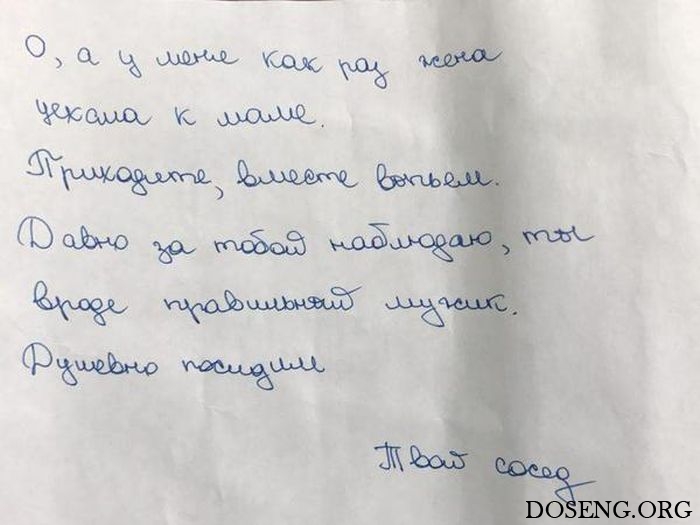 О, а у меня как раз жена
уехала к маме.
Приходите, вместе выпьем.
Давно за тобой наблюдаю, ты
вроде правильный мужик.
Душевно посидим
Твой сосед
DOSENG.ORG